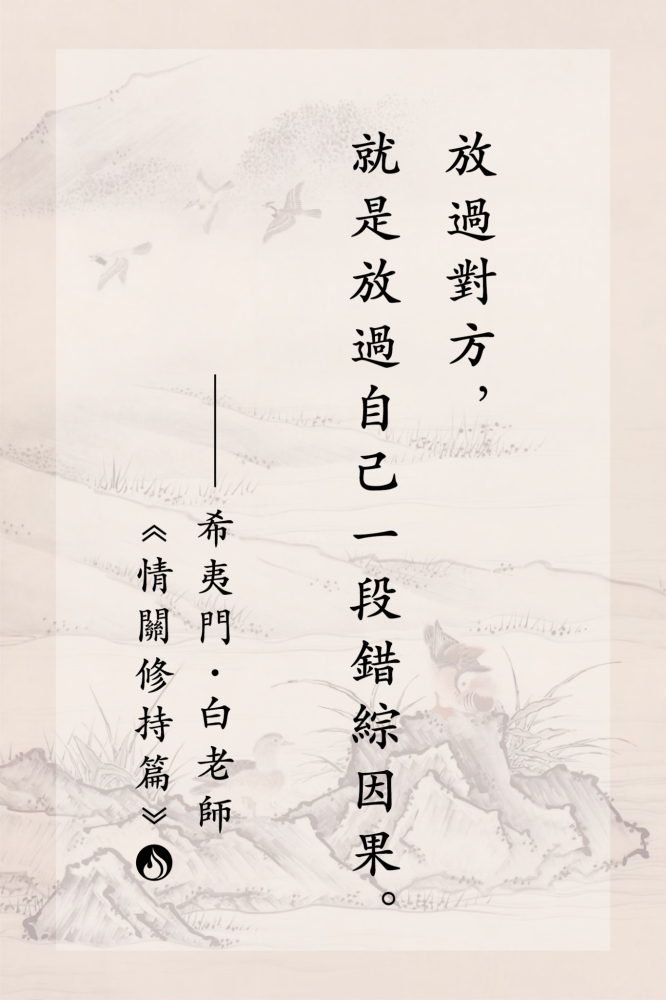 放過對方，
就是放過自己一段錯綜因果。
——希夷門·白老師
《情關修持篇》